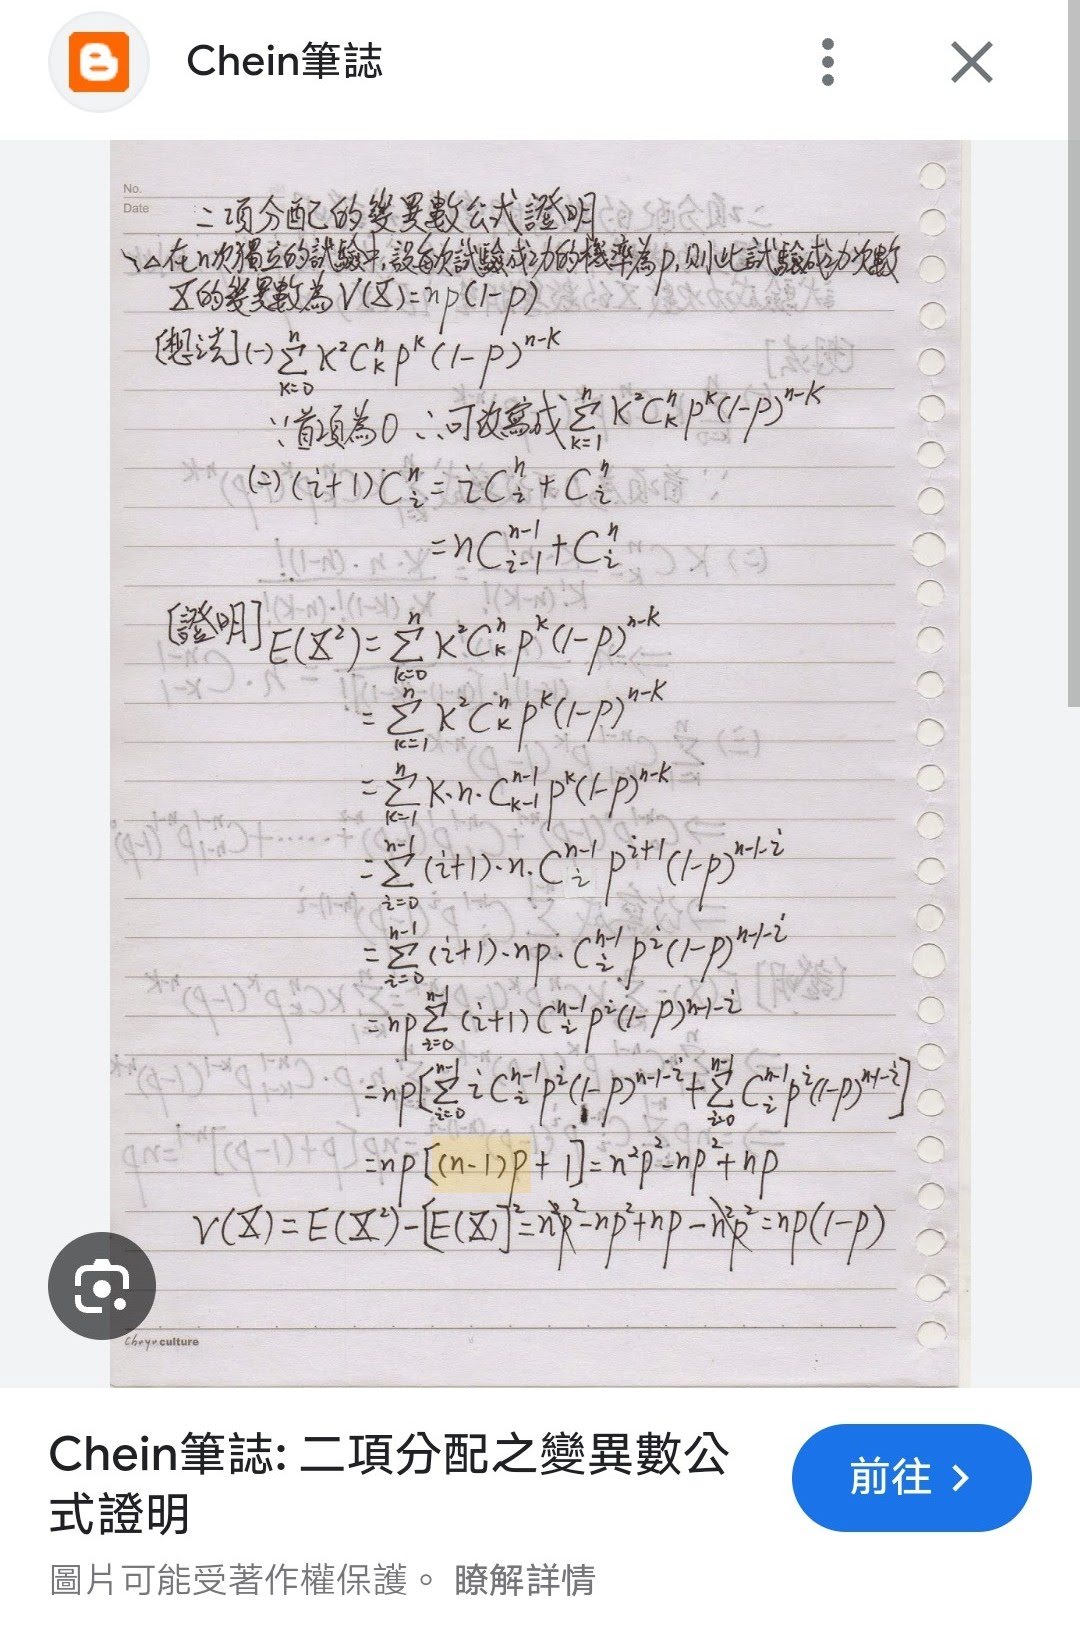 Chein筆誌
No.
Date
二項分配的變異數公式證明
△在n次獨立的試驗中,設每次試驗成功的機率為p,則此試驗成功次數
X的變異數為V(X)=np(1-p)
[想法](一) Σ_{k=0}^{n} k²C_k^n p^k (1-p)^{n-k}
∵首項為0 ∴可改寫成 Σ_{k=1}^{n} k²C_k^n p^k (1-p)^{n-k}
(二) (i+1)C_i^n = iC_i^n + C_i^n
=nC_{i-1}^{n-1} + C_i^n
[證明] E(X²)= Σ_{k=0}^{n} k²C_k^n p^k (1-p)^{n-k}
= Σ_{k=1}^{n} k²C_k^n p^k (1-p)^{n-k}
= Σ_{k=1}^{n} k·n·C_{k-1}^{n-1} p^k (1-p)^{n-k}
= Σ_{i=0}^{n-1} (i+1)·n·C_i^{n-1} p^{i+1} (1-p)^{n-1-i}
= Σ_{i=0}^{n-1} (i+1)·np·C_i^{n-1} p^i (1-p)^{n-1-i}
=np Σ_{i=0}^{n-1} (i+1) C_i^{n-1} p^i (1-p)^{n-1-i}
=np[Σ_{i=0}^{n-1} i C_i^{n-1} p^i (1-p)^{n-1-i} + Σ_{i=0}^{n-1} C_i^{n-1} p^i (1-p)^{n-1-i}]
=np[(n-1)p+1]=n²p²-np²+np
V(X)=E(X²)-[E(X)]²=n²p²-np²+np-n²p²=np(1-p)
culture
Chein筆誌: 二項分配之變異數公
式證明
前往
圖片可能受著作權保護。 瞭解詳情